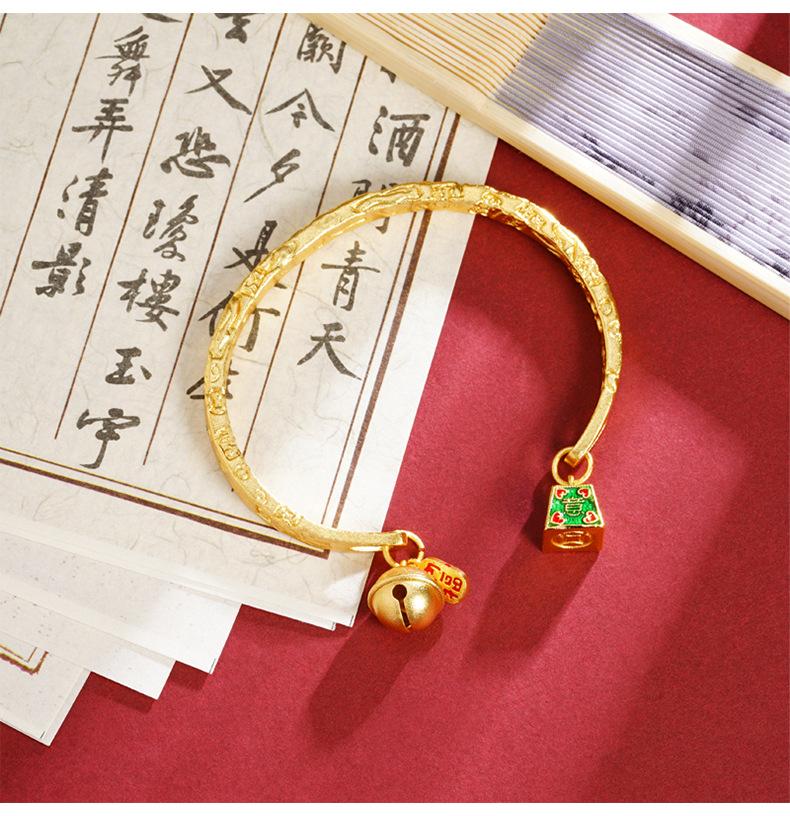 酒問青天
闕今夕是何年
又恐瓊樓玉宇
舞弄清影
福